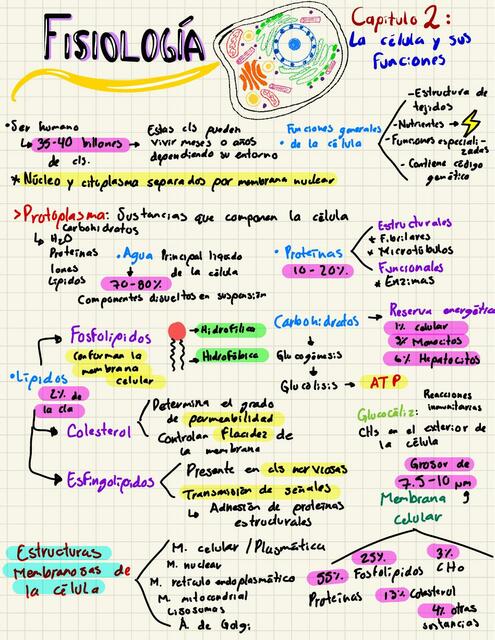 FISIOLOGÍA
Capitulo 2:
La célula y sus
Funciones
• Ser humano
↳ 35-40 billones
de cls.
Estas cls pueden
vivir meses o años
dependiendo su entorno
Funciones generales
• de la célula
- Estructura de
tejidos
- Nutrientes →
- Funciones especiali-
zadas
- Contiene código
genético
* Núcleo y citoplasma separados por membrana nuclear
> Protoplasma: Sustancias que componen la célula
Carbohidratos
↳ H₂O
Proteínas
Iones
Lípidos
• Agua Principal liquido
de la célula
70-80%
Componentes disueltos en suspensión
• Proteínas
10-20%
Estructurales
* Fibrilares
* Microtúbulos
Funcionales
* Enzimas
• Lípidos
2% de
la cla
Fosfolípidos
Conforman la
membrana
celular
→ Hidrofílica
→ Hidrófóbica
Carbohidratos
Glucogénosis
Glucólisis → ATP
Reserva energética
1% celular
3% Monocitos
6% Hepatocitos
Colesterol
Determina el grado
de permeabilidad
Controlan Flacidez de
la membrana
Glucocáliz:
Reacciones
inmunitarias
CHs en el exterior de
la célula
Esfingolípidos
Presente en cls nerviosas
Transmisión de señales
↳ Adhesión de proteínas
estructurales
Grosor de
7.5-10 μm
Membrana
Celular
55%
Proteínas
25%
Fosfolípidos
13% Colesterol
3%
CHO
4% otras
sustancias
Estructuras
Membranosas de
la célula
M. celular / Plasmática
M. nuclear
M. retículo endoplasmático
M. mitocondrial
Lisosomas
A. de Golgi